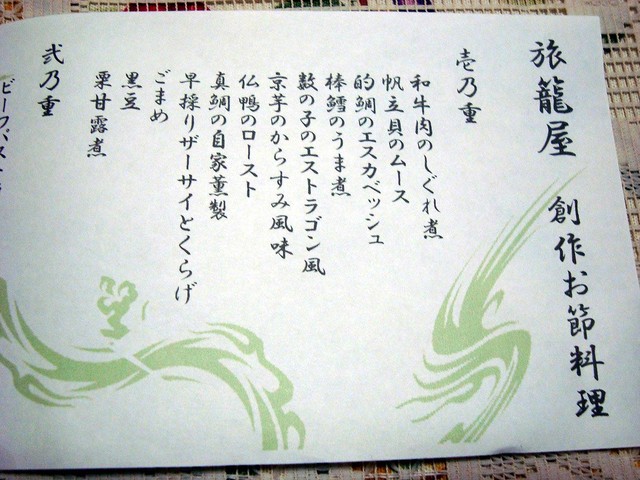 旅籠屋 創作お節料理
壱乃重
和牛肉のしぐれ煮
帆立貝のムース
的鯛のエスカベッシュ
棒鱈のうま煮
数の子のエストラゴン風
京芋のからすみ風味
仏鴨のロースト
真鯛の自家薫製
早採りザーサイとくらげ
ごまめ
黒豆
栗甘露煮
弐乃重